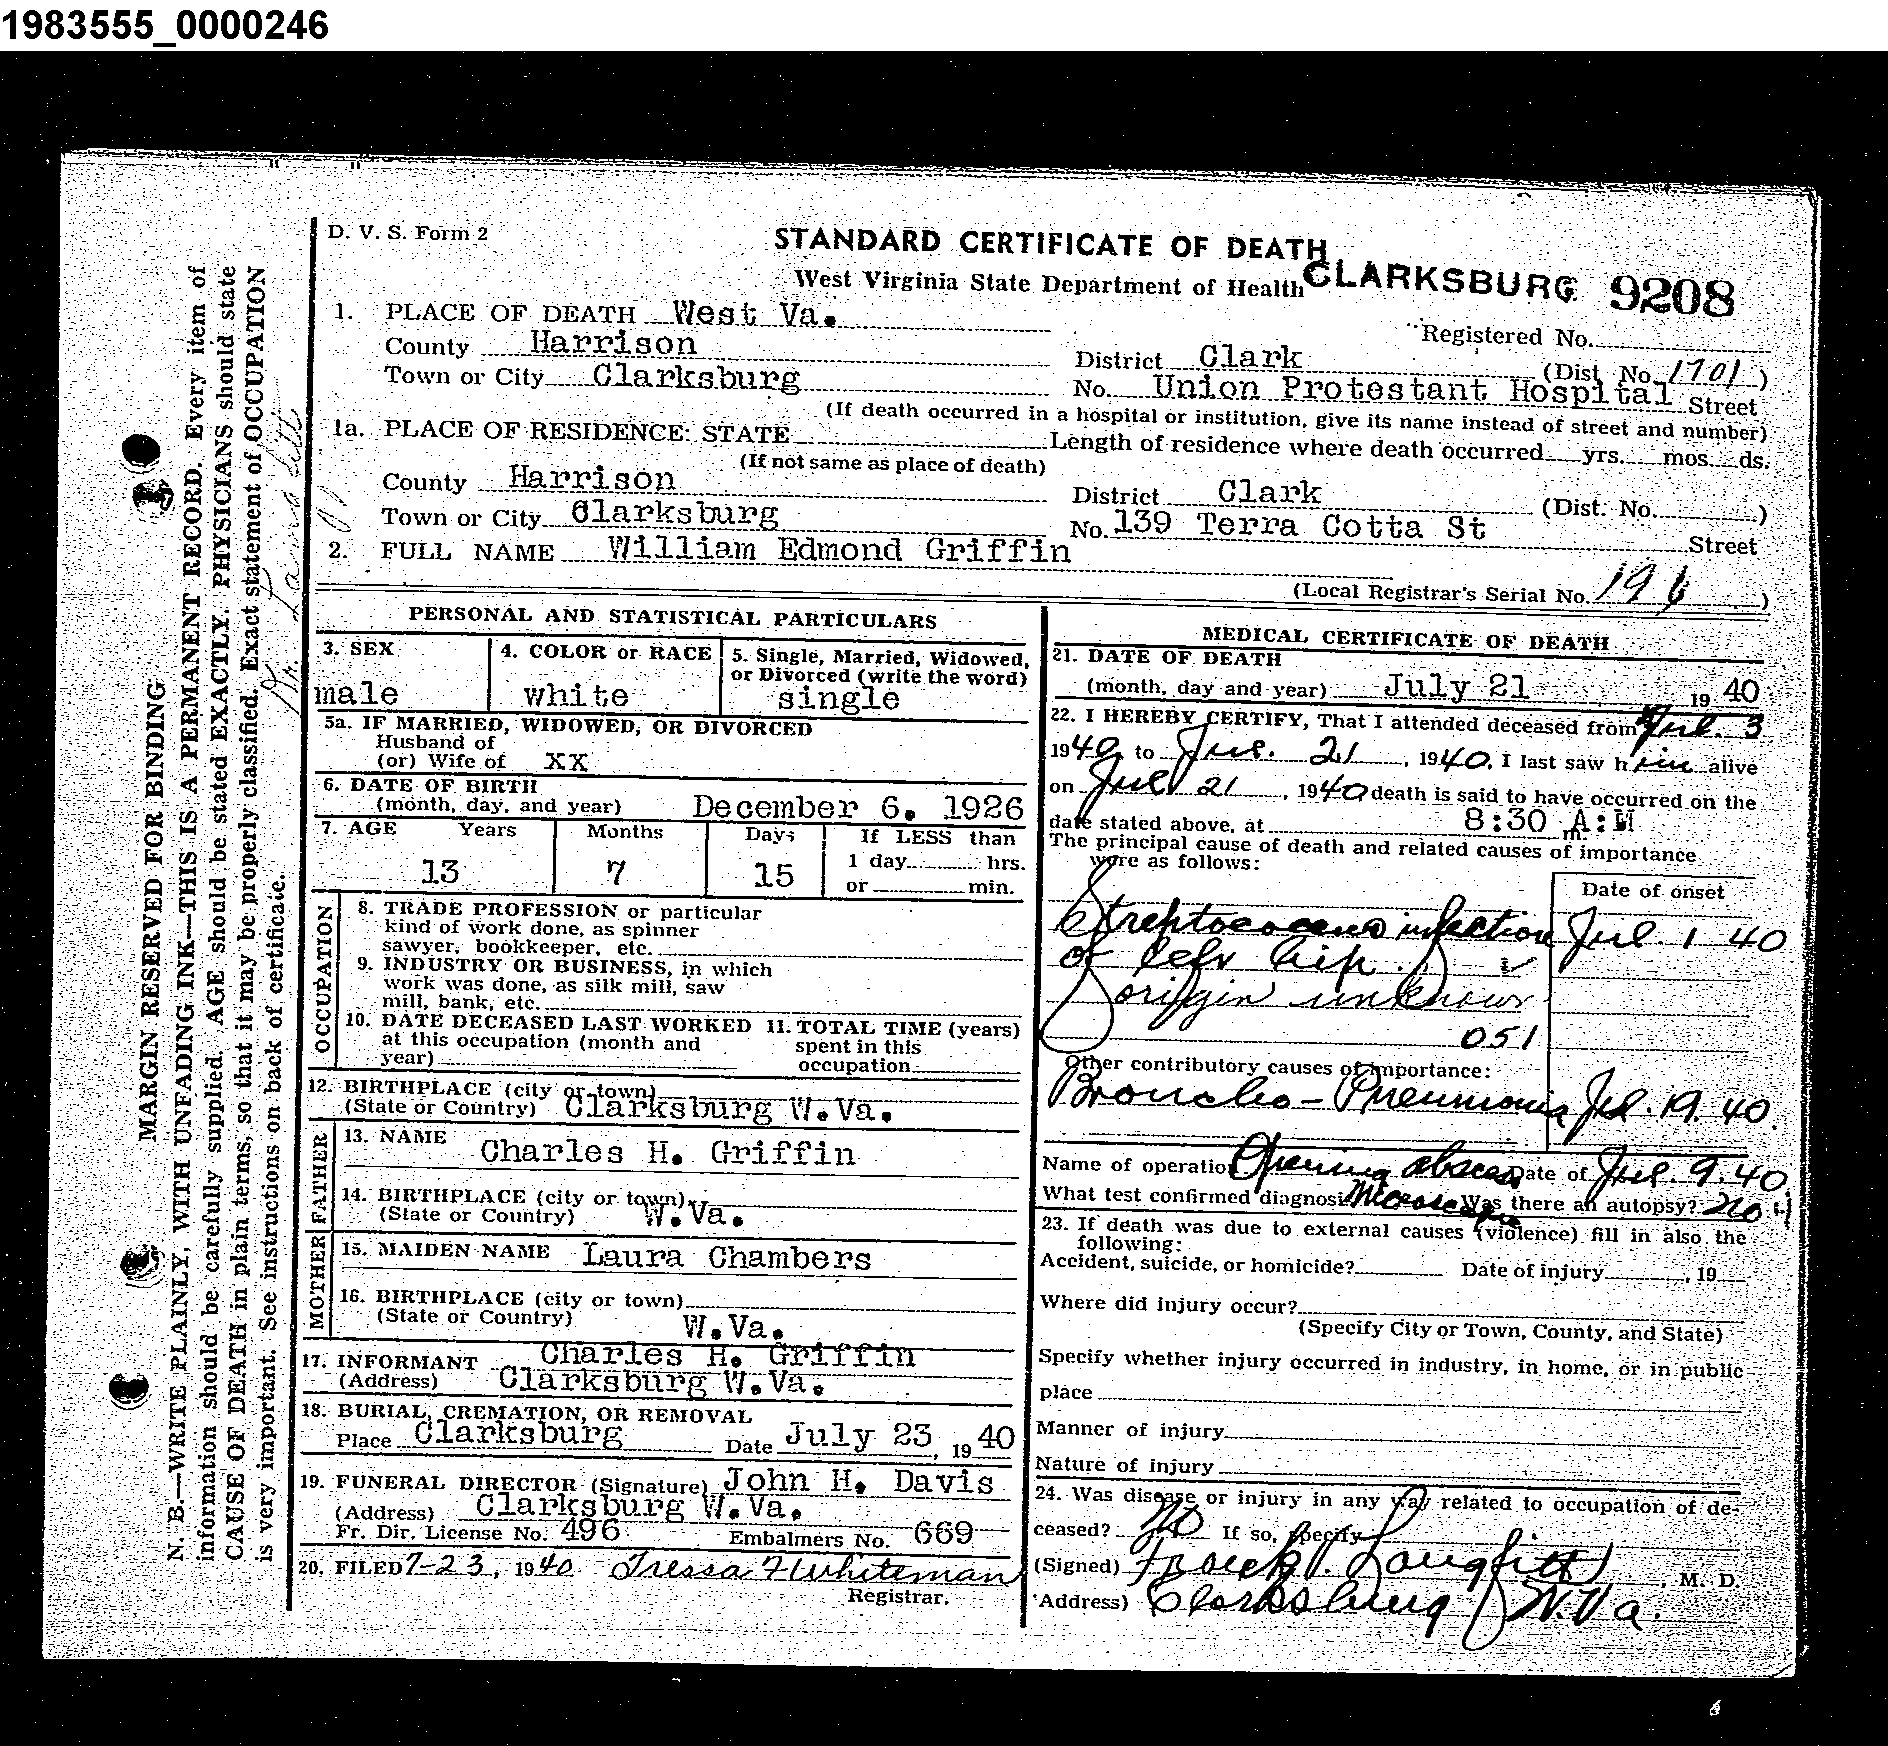 1983555_0000246
D. V. S. Form 2
STANDARD CERTIFICATE OF DEATH
West Virginia State Department of Health CLARKSBURG 9208
1. PLACE OF DEATH West Va.
Registered No.
County Harrison District Clark (Dist. No. 1701)
Town or City Clarksburg No. Union Protestant Hospital Street
(If death occurred in a hospital or institution, give its name instead of street and number)
1a. PLACE OF RESIDENCE: STATE Length of residence where death occurred yrs. mos. ds.
(If not same as place of death)
County Harrison District Clark (Dist. No. )
Town or City Clarksburg No. 139 Terra Cotta St Street
2. FULL NAME William Edmond Griffin
(Local Registrar's Serial No. 196 )
PERSONAL AND STATISTICAL PARTICULARS
3. SEX
male
4. COLOR or RACE
white
5. Single, Married, Widowed,
or Divorced (write the word)
single
5a. IF MARRIED, WIDOWED, OR DIVORCED
Husband of
(or) Wife of XX
6. DATE OF BIRTH
(month, day, and year) December 6. 1926
7. AGE Years Months Days If LESS than
13 7 15 1 day hrs.
or min.
OCCUPATION
8. TRADE PROFESSION or particular
kind of work done, as spinner
sawyer, bookkeeper, etc.
9. INDUSTRY OR BUSINESS, in which
work was done, as silk mill, saw
mill, bank, etc.
10. DATE DECEASED LAST WORKED
at this occupation (month and
year)
11. TOTAL TIME (years)
spent in this
occupation
12. BIRTHPLACE (city or town)
(State or Country) Clarksburg W.Va.
FATHER
13. NAME Charles H. Griffin
14. BIRTHPLACE (city or town)
(State or Country) W.Va.
MOTHER
15. MAIDEN NAME Laura Chambers
16. BIRTHPLACE (city or town)
(State or Country) W.Va.
17. INFORMANT Charles H. Griffin
(Address) Clarksburg W.Va.
18. BURIAL, CREMATION, OR REMOVAL
Place Clarksburg Date July 23, 1940
19. FUNERAL DIRECTOR (Signature) John H. Davis
(Address) Clarksburg W.Va.
Fr. Dir. License No. 496 Embalmers No. 669
20. FILED 7-23, 1940 Tressa F Whiteman
Registrar.
MEDICAL CERTIFICATE OF DEATH
21. DATE OF DEATH
(month, day and year) July 21 1940
22. I HEREBY CERTIFY, That I attended deceased from Jul. 3
1940 to Jul. 21, 1940. I last saw him alive
on Jul 21, 1940 death is said to have occurred on the
date stated above, at 8:30 A:M m.
The principal cause of death and related causes of importance
were as follows:
Date of onset
Streptococcus infection Jul. 1 40
of left hip.
origin unknown
051
Other contributory causes of importance:
Broncho-Pneumonia Jul. 19. 40.
Name of operation Opening abscess Date of Jul. 9. 40
What test confirmed diagnosis Microscopic Was there an autopsy? No
23. If death was due to external causes (violence) fill in also the
following:
Accident, suicide, or homicide? Date of injury , 19
Where did injury occur?
(Specify City or Town, County, and State)
Specify whether injury occurred in industry, in home, or in public
place
Manner of injury
Nature of injury
24. Was disease or injury in any way related to occupation of de-
ceased? No If so, specify
(Signed) Langfitt, M. D.
(Address) Clarksburg W.Va.
MARGIN RESERVED FOR BINDING
N. B.—WRITE PLAINLY, WITH UNFADING INK—THIS IS A PERMANENT RECORD. Every item of
information should be carefully supplied. AGE should be stated EXACTLY. PHYSICIANS should state
CAUSE OF DEATH in plain terms, so that it may be properly classified. Exact statement of OCCUPATION
is very important. See instructions on back of certificate.